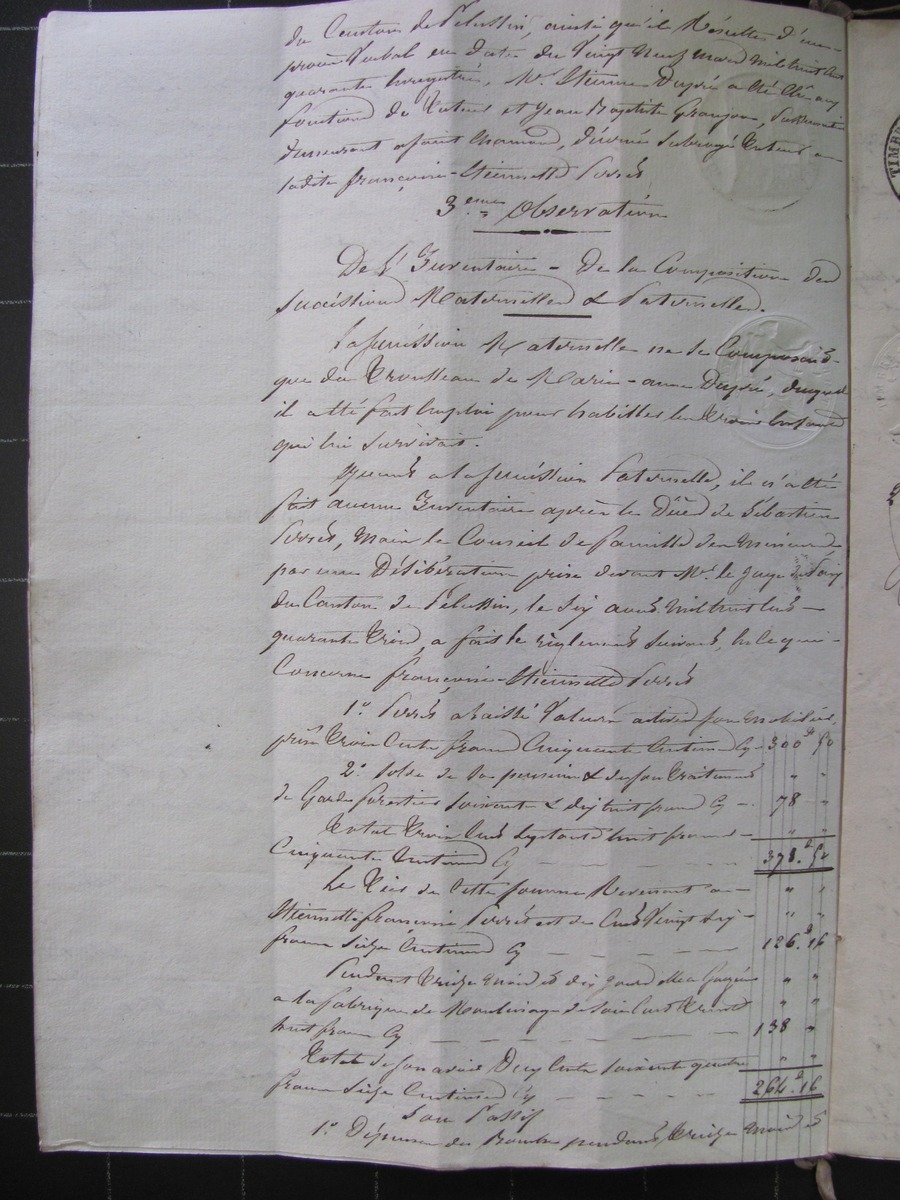 du Canton de Pélussin, ainsi qu'il Résulte d'un
procès Verbal en date du Vingt Neuf mars mil huit cent
quarante trois, enregistré, Mr Etienne Dupré a été élu aux
fonctions de Tuteur et Jean Baptiste Granjon,
demeurant à Saint Chamond, subrogé Tuteur de
ladite françoise-Etiennette
3eme Observation
De l'Inventaire - De la Composition des
Successions Maternelle & Paternelle.
La succession Maternelle ne se Composait
que du Trousseau de Marie-anne Dupré, duquel
il a été fait Emploi pour habiller les trois Enfants
qui lui survivait.
Quant a la succession Paternelle, il n'a été
fait aucun Inventaire après le Décès de Sébastien
mais le Conseil de famille des Mineurs,
par une Délibération prise devant Mr. le Juge de Paix
du Canton de Pélussin, le Six avril mil huit cent
quarante trois, a fait le règlement suivant, en ce qui
Concerne françoise-Etiennette
1º a laissé Valeurs actives, son mobilier,
prisé trois Cents francs Cinquante Centimes Cy 300 50
2º Solde de sa pension & de son traitement " "
de Garde forestier soixante & dix huit francs Cy 78 "
Total Trois Cent Septante huit francs " "
Cinquante Centimes Cy 378. 50
Le Tiers de Cette somme Revenant a " "
Etiennette françoise est de Cent Vingt Six " "
francs Seize Centimes Cy 126. 16
Pendant treize mois et dix jours elle a Gagné " "
a la fabrique de Moulinage de soie Cent trente " "
huit francs Cy 138 "
Total de son avoir Deux Cents soixante quatre " "
francs Seize Centimes Cy 264. 16
Son Passif
1º Dépense de Bouche pendant treize mois et